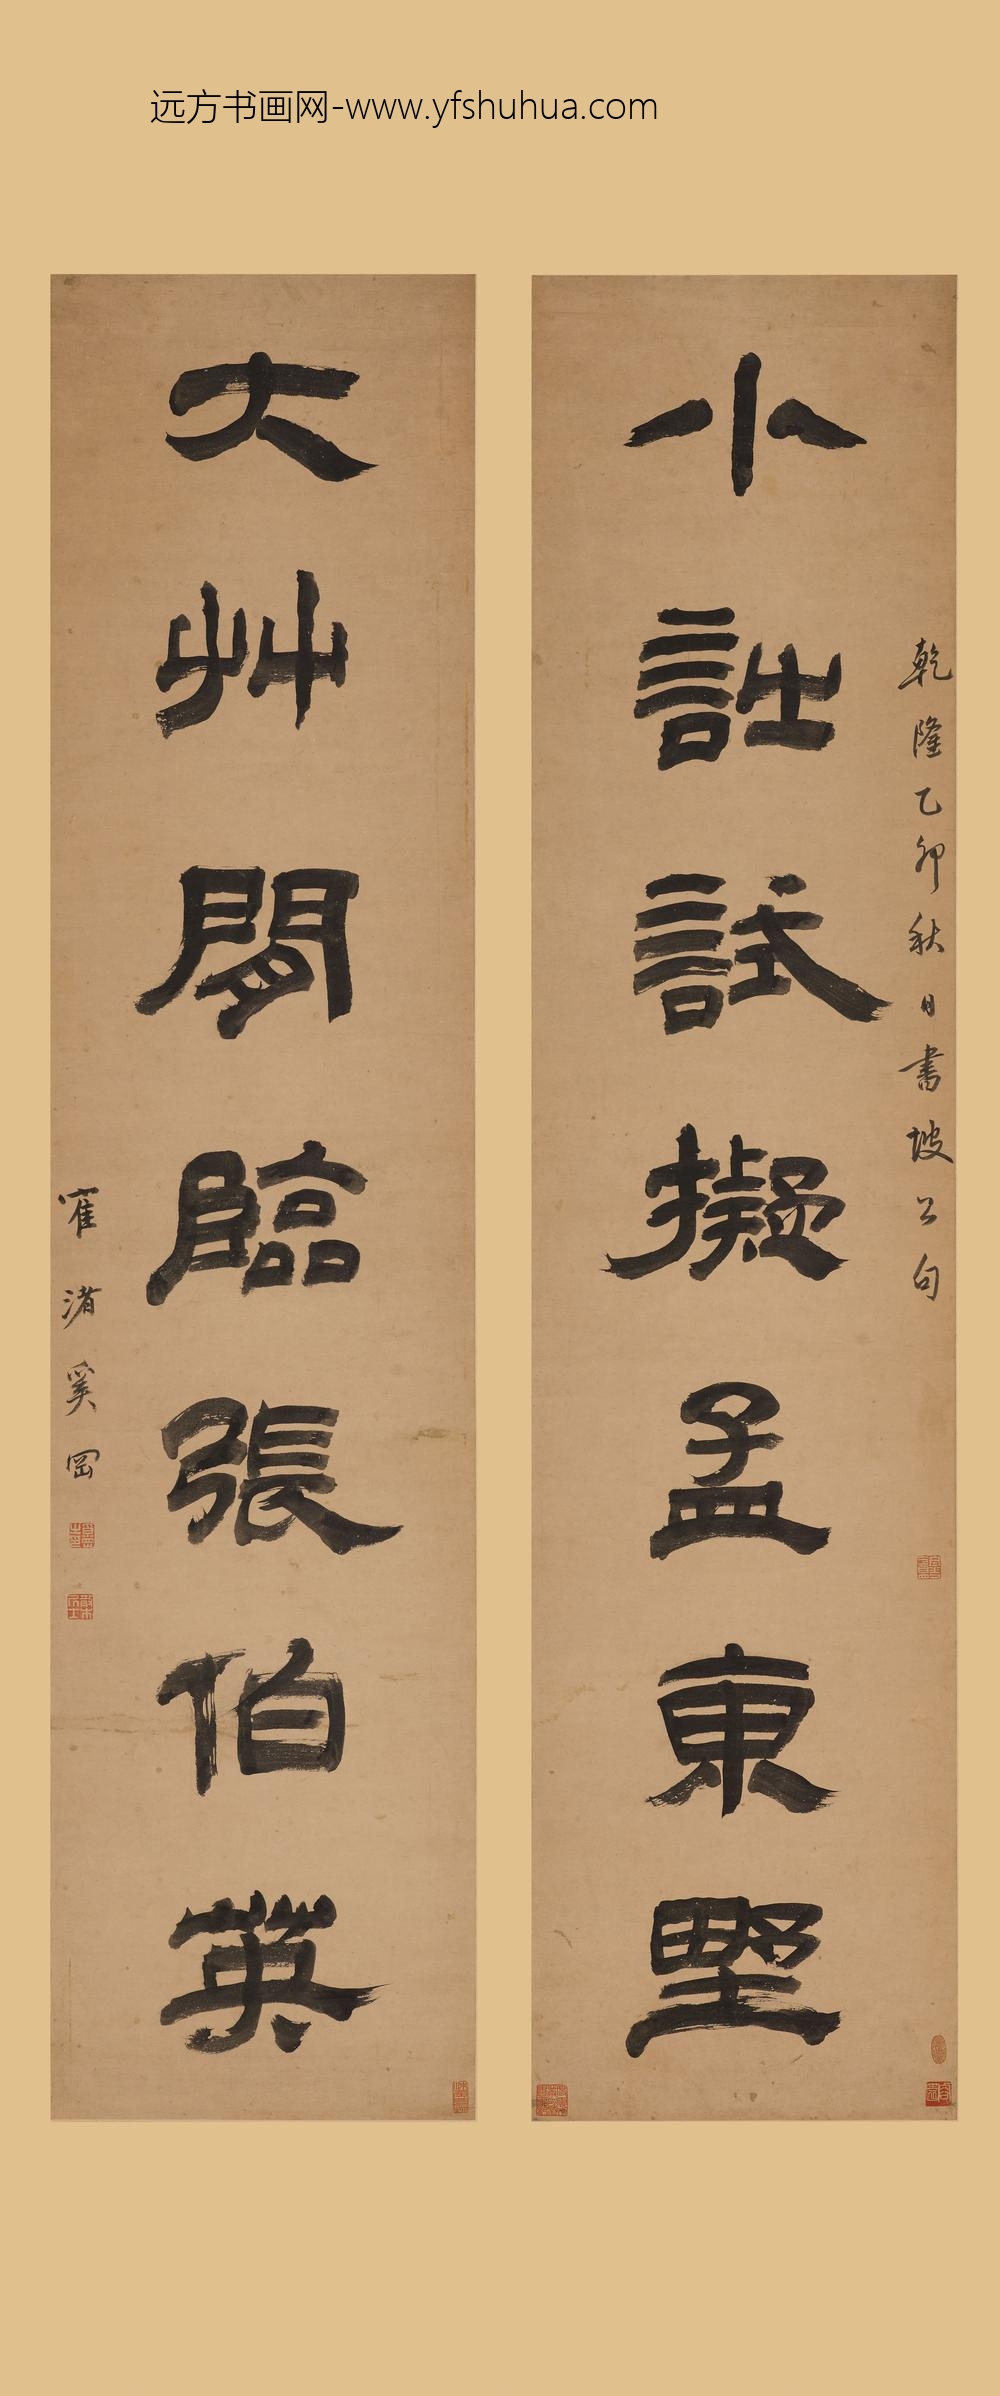 远方书画网-www.yfshuhua.com
乾隆乙卯秋日書坡公句
小詘試擬孟東墅
大艸閒臨張伯英
寉渚奚岡